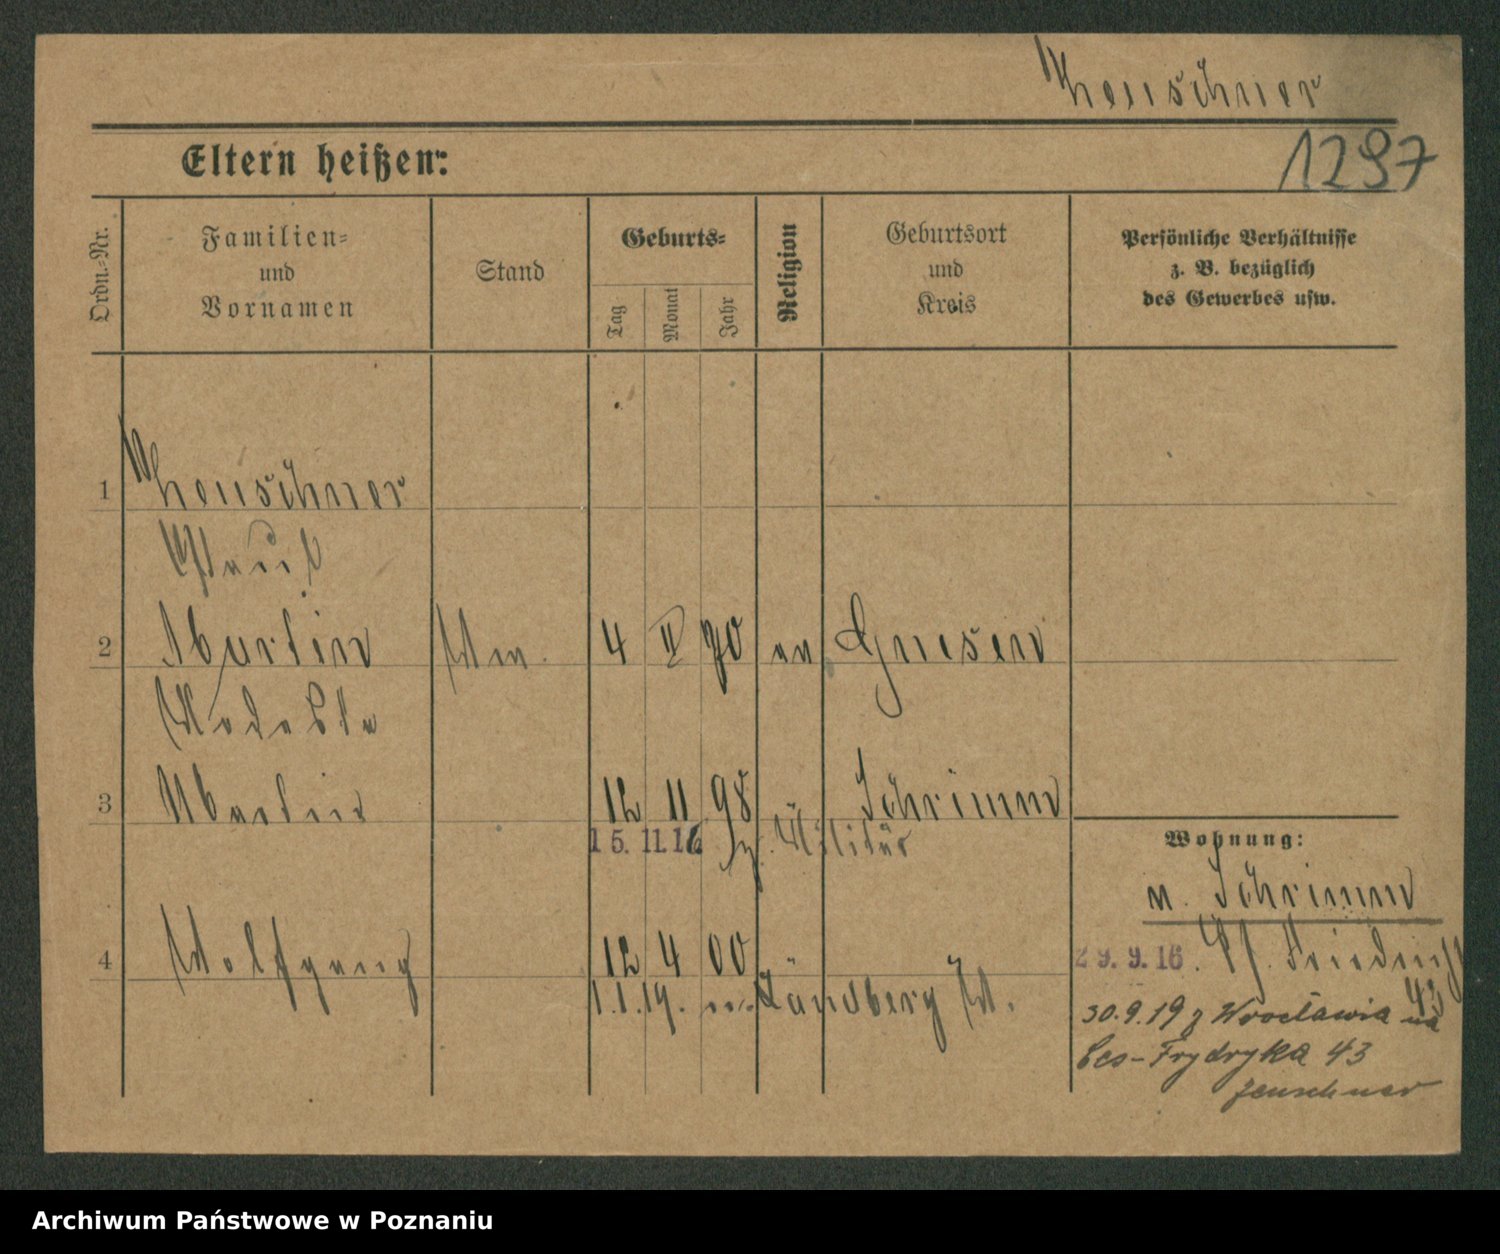 1297
Eltern heißen:
Ordn.-Nr.
Familien-
und
Vornamen
Stand
Geburts-
Tag
Monat
Jahr
Religion
Geburtsort
und
Kreis
Persönliche Verhältnisse
z. B. bezüglich
des Gewerbes usw.
1
Paul
2 Martin 4 II 70 ev Gnesen
3 Martin 12 11 98 Schrimm
15. 11. 16 z. Militär
Wohnung:
n. Schrimm
4 Wolfgang 12 4 00
29. 9. 16.
43
1.1.19. Landsberg W.
30.9.19 z Wrocławia na
Ces-Frydryka 43